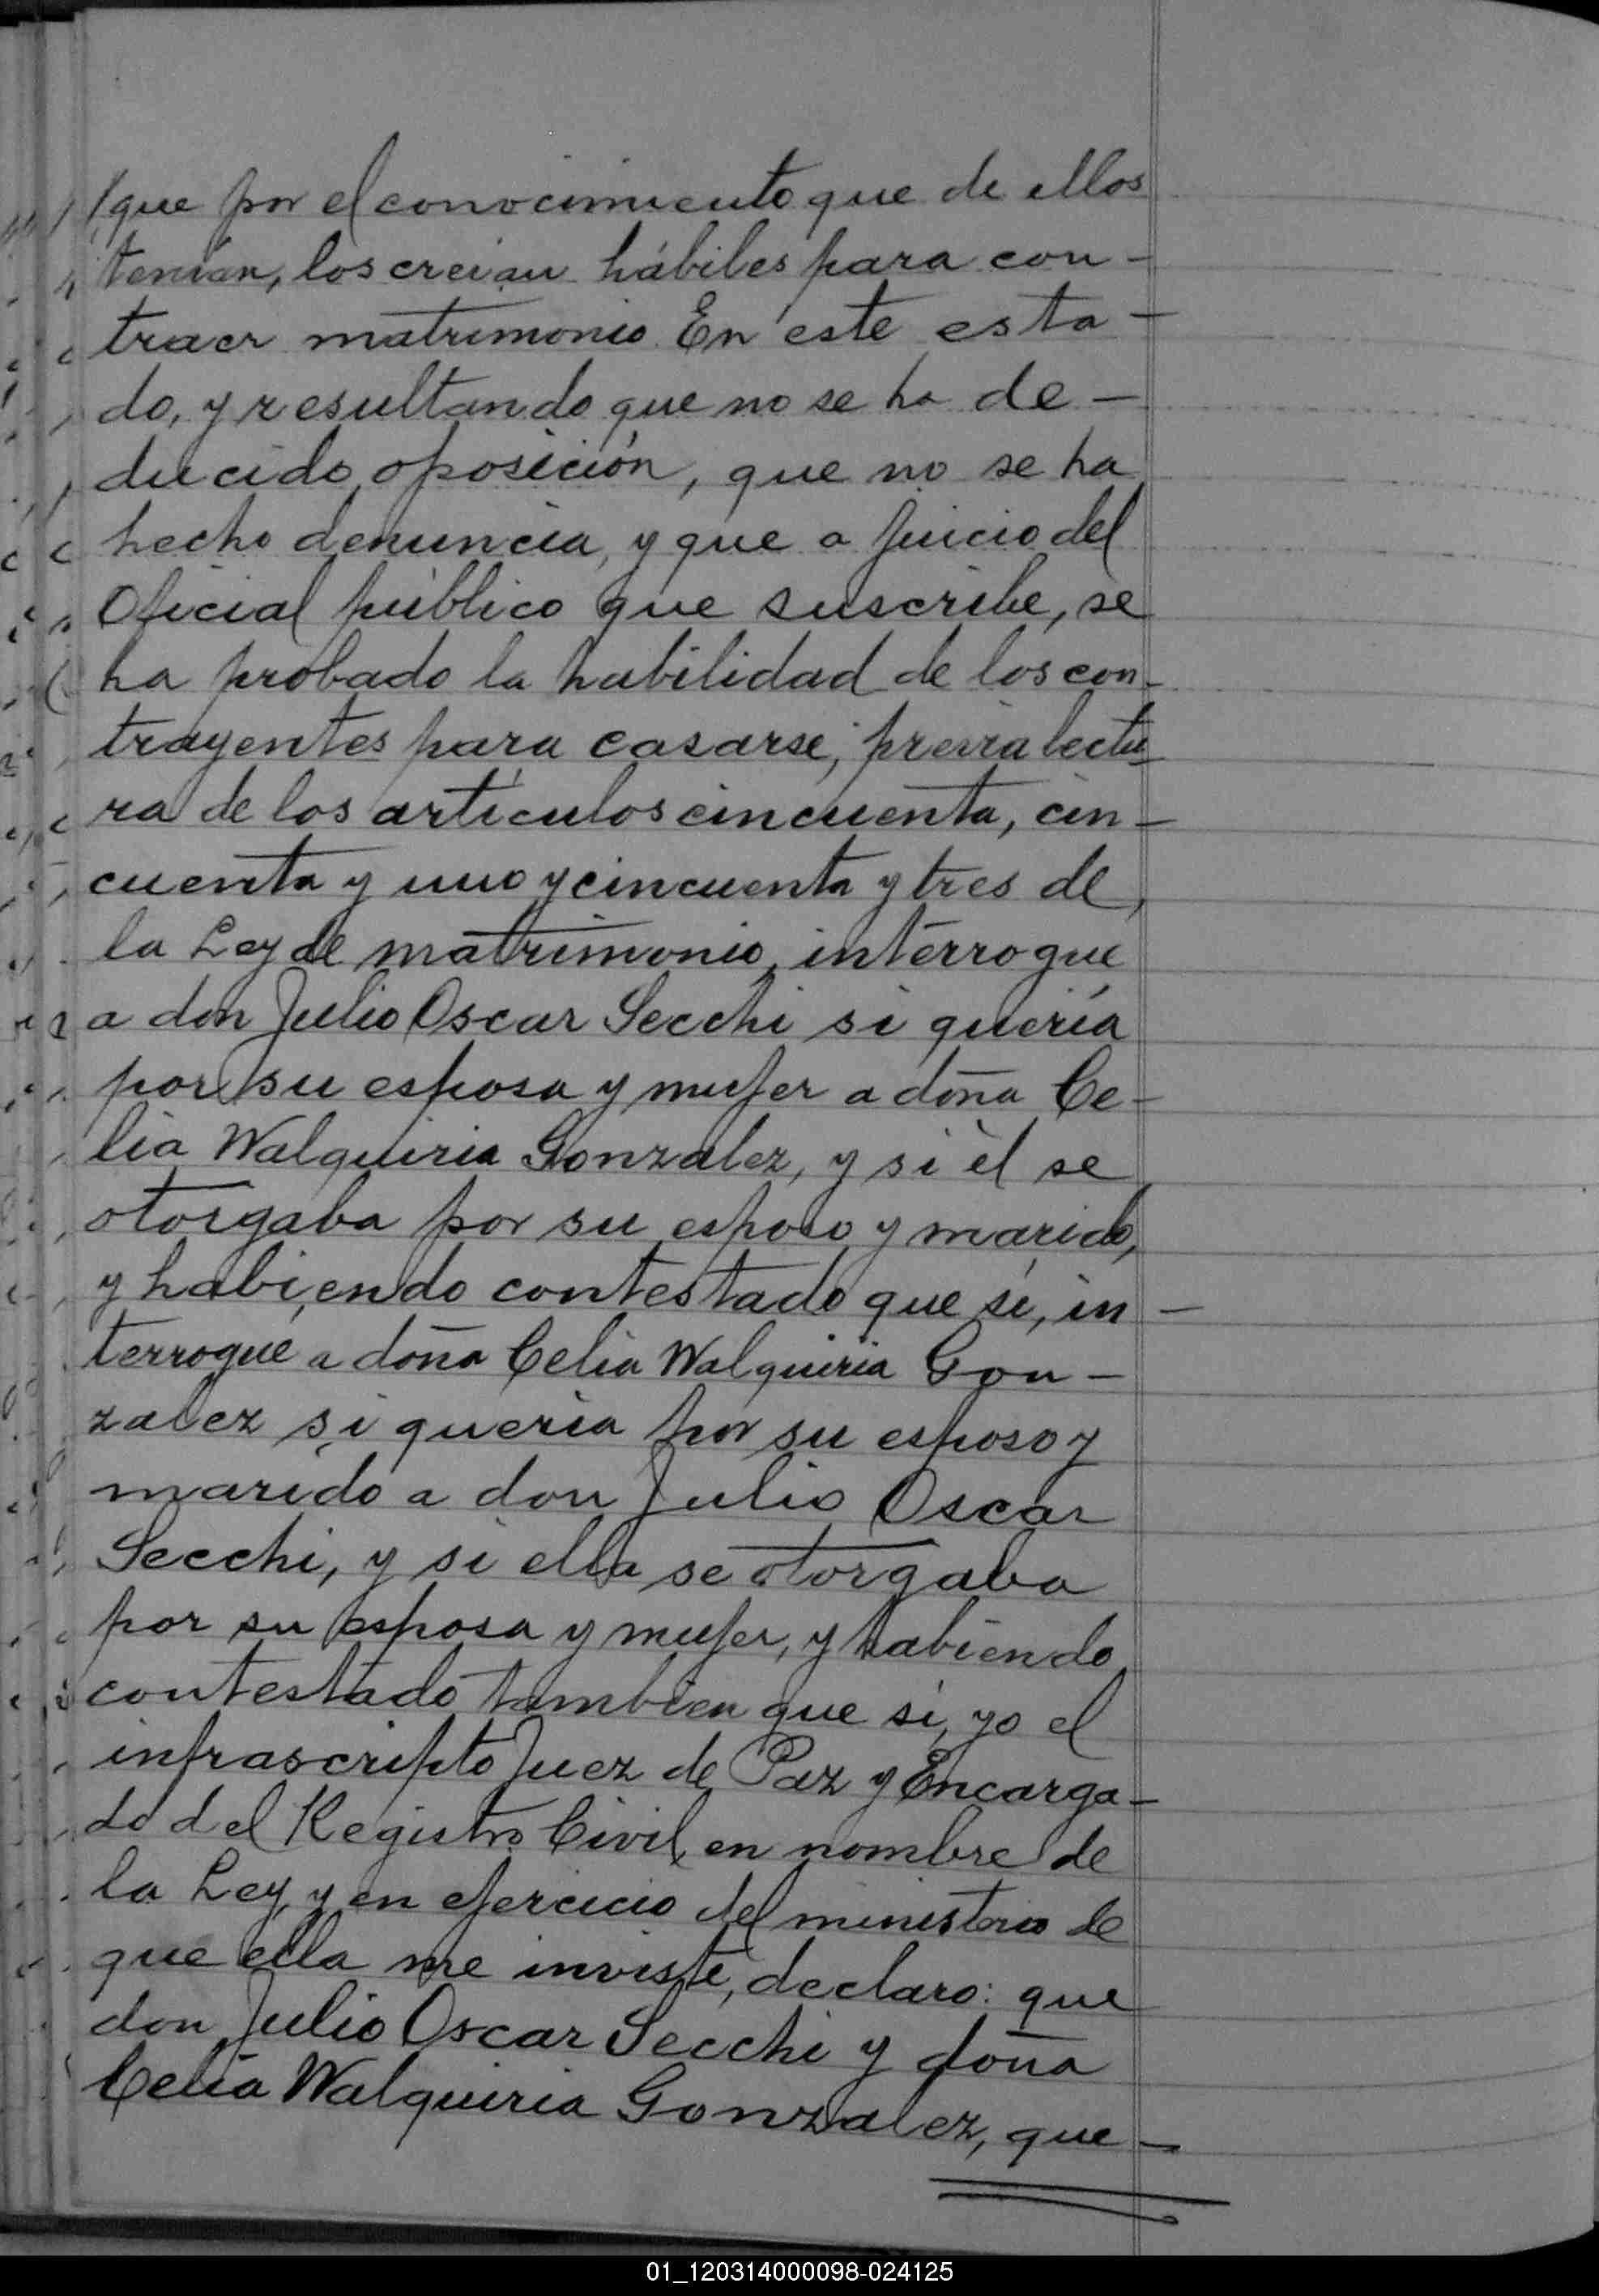 //que por el conocimiento que de ellos
tenían, los creían hábiles para con-
traer matrimonio. En este esta-
do, y resultando que no se ha de-
ducido oposición, que no se ha
hecho denuncia, y que a juicio del
Oficial público que suscribe, se
ha probado la habilidad de los con-
trayentes para casarse, previa lectu
ra de los artículos cincuenta, cin-
cuenta y uno y cincuenta y tres de
la Ley de matrimonio, interrogué
a don Julio Oscar Secchi si quería
por su esposa y mujer a doña Ce-
lia Walquiria Gonzalez, y si él se
otorgaba por su esposo y marido,
y habiendo contestado que sí, in-
terrogué a doña Celia Walquiria Gon-
zalez si quería por su esposo y
marido a don Julio Oscar
Secchi, y si ella se otorgaba
por su esposa y mujer, y habiendo
contestado tambien que sí, yo el
infrascripto Juez de Paz y Encarga-
do del Registro Civil, en nombre de
la Ley, y en ejercicio del ministerio de
que ella me inviste, declaro: que
don Julio Oscar Secchi y doña
Celia Walquiria Gonzalez, que-
01_120314000098-024125